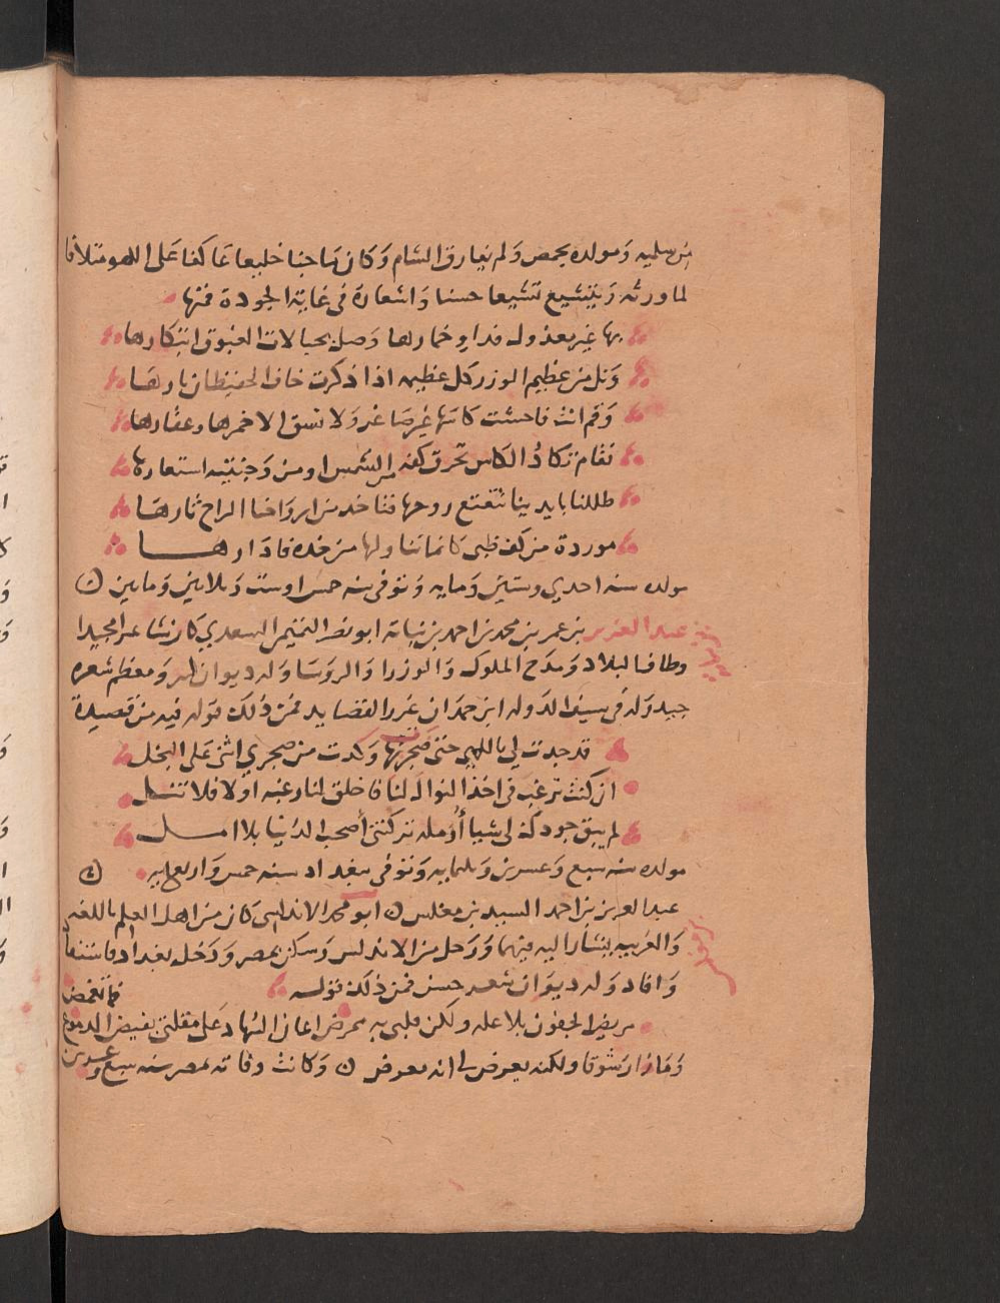 من سلميه ومولده بحمص ولم يفارق الشام وكان ماجنا خليعا عاكفا على اللهو متلافا
لما ورثه ويتشيع تشيعا حسنا واشعاره في غاية الجودة فمنها
بها غير معذول فداو خمارها وصل بحبالات الغبوق ابتكارها
ونل من عظيم الوزر كل عظيمه اذا ذكرت خاف الحفيظان نارها
وقم انت فاحثث كاسها غير صاغر ولا تسق الا خمرها وعقارها
فقام تكاد الكاس تحرق كفه من الشمس او من وجنتيه استعارها
ظللنا بايدينا نتعتع روحها فتاخذ من ارواحنا الراح ثارها
موردة من كف ظبي كانما تناولها من خده فادارها
مولده سنه احدي وستين ومايه وتوفي سنه خمس او ست وثلاثين ومايتين
عبد العزيز بن عمر بن محمد بن احمد بن نباتة ابو نصر التميمي السعدي كان شاعرا مجيدا
وطاف البلاد ومدح الملوك والوزرا والروسا وله ديوان ومعظم شعره
جيد وله في سيف الدوله ابن حمدان غرر القصايد فمن ذلك قوله فيه من قصيدة
قد جدت لي باللهى حتى ضجرت بها وكدت من ضجري اثنى على البخل
ان كنت ترغب في اخذ النوال لنا فاخلق لنا رغبه اولا فلا تنل
لم يبق جودك لي شيا أؤمله تركتني أصحب الدنيا بلا امل
مولده سنه سبع وعشرين وثلثمايه وتوفي ببغداد سنه خمس واربعمايه
عبد العزيز بن احمد السيد بن مغلس ابو محمد الاندلسي كان من اهل العلم باللغه
والعربيه يشار اليه فيهما ورحل من الاندلس وسكن بمصر ودخل بغداد فاستفاد
وافاد وله ديوان شعر حسن فمن ذلك قوله
مريض الجفون بلا عله ولكن قلبي به ممرض اعان السهاد على مقلتي بفيض الدموع فما تغمض
وما زار شوقا ولكنه يعرض لي انه معرض وكانت وفاته بمصر سنه سبع وعشرين